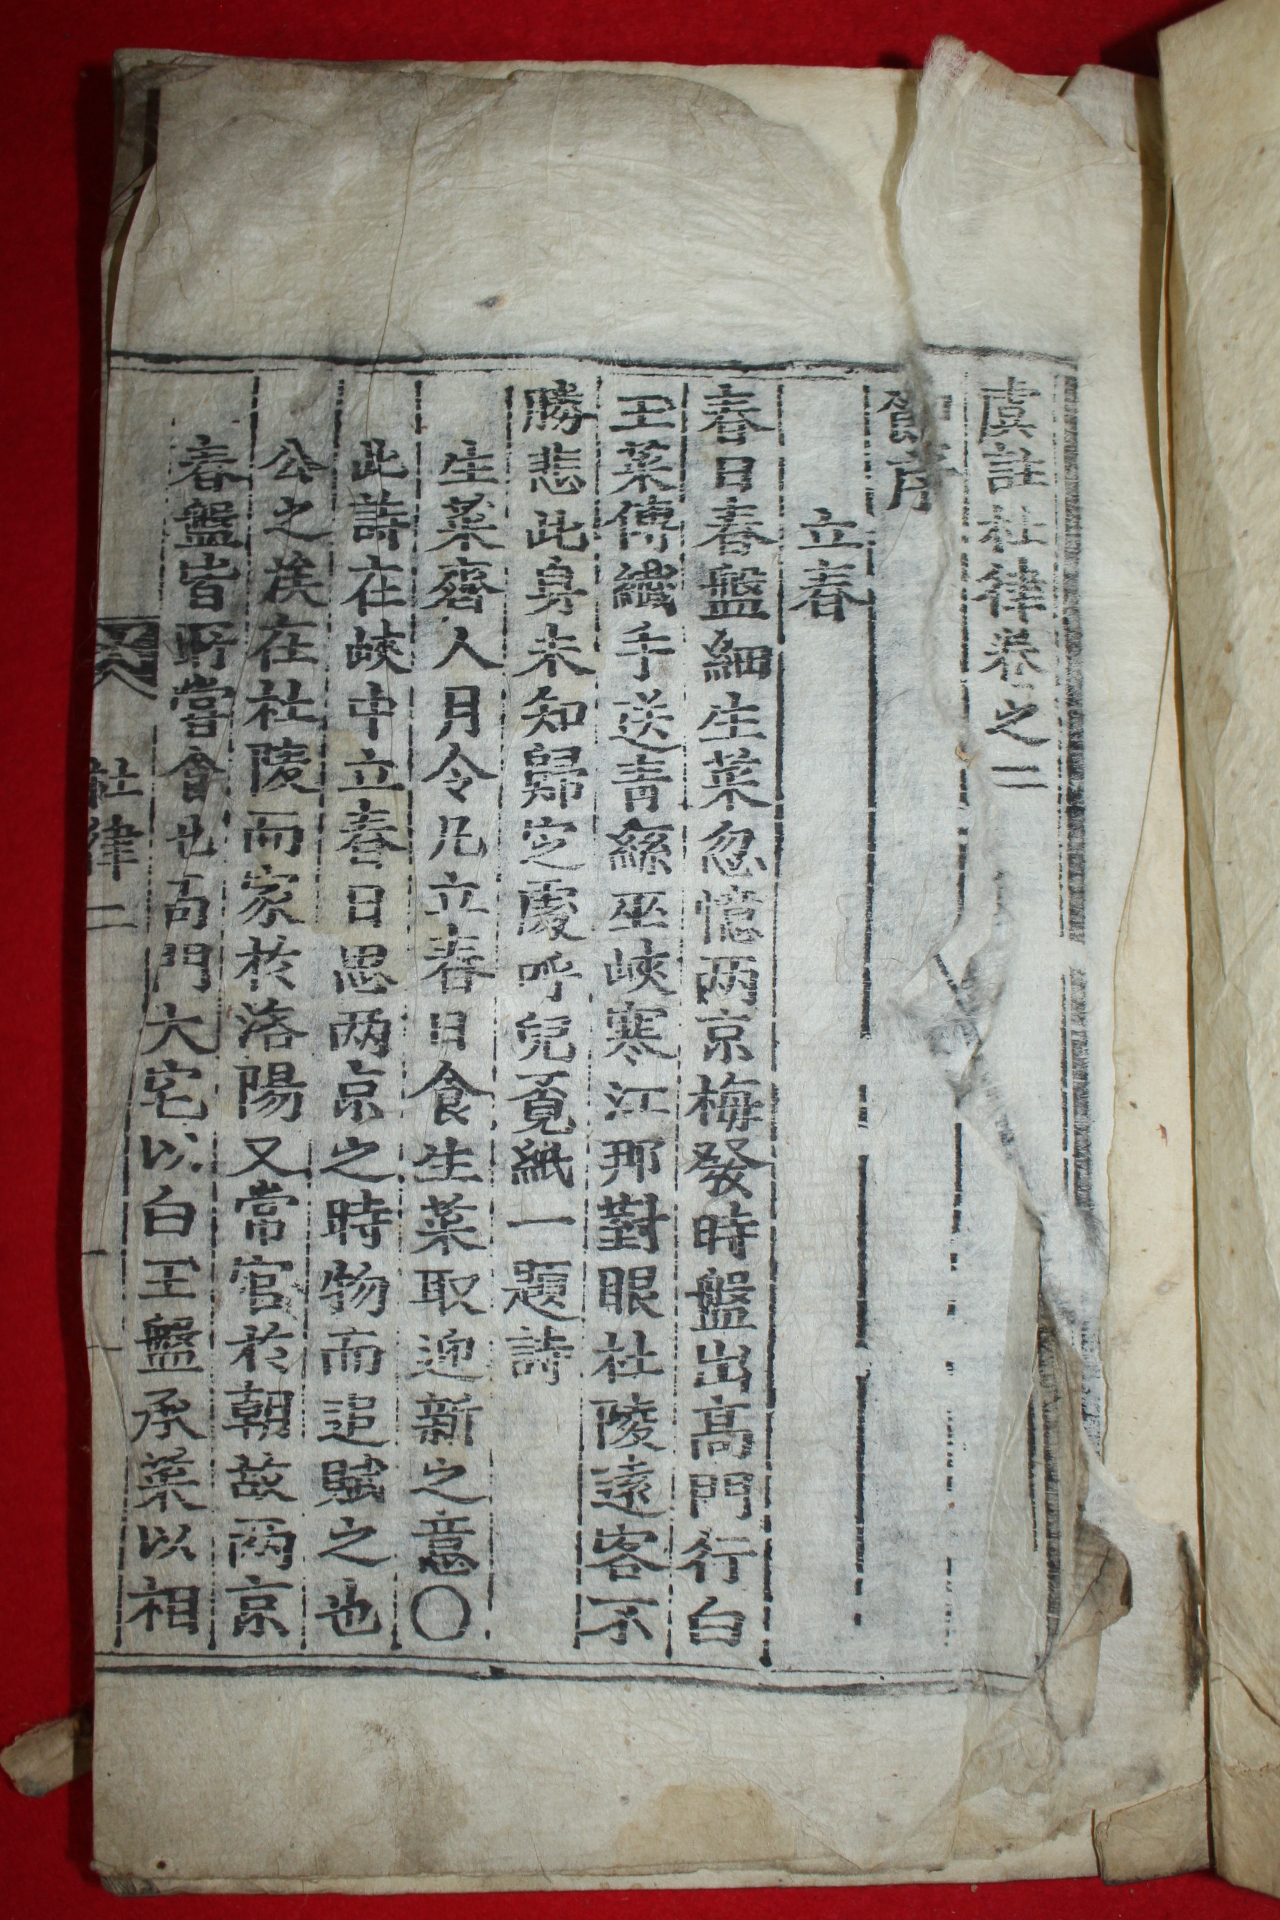 虞註杜律卷之二
節序
立春
春日春盤細生菜忽憶两京梅發時盤出高門行白
玉菜傳纖手送青絲巫峽寒江那對眼杜陵遠客不
勝悲此身未知歸定處呼兒覔紙一題詩
生菜齋人月令凡立春日食生菜取迎新之意〇
此詩在峽中立春日思两京之時物而追賦之也
公之族在杜陵而家於洛陽又常官於朝故两京
春盤皆所嘗食也高門大宅以白玉盤承菜以相
杜律二